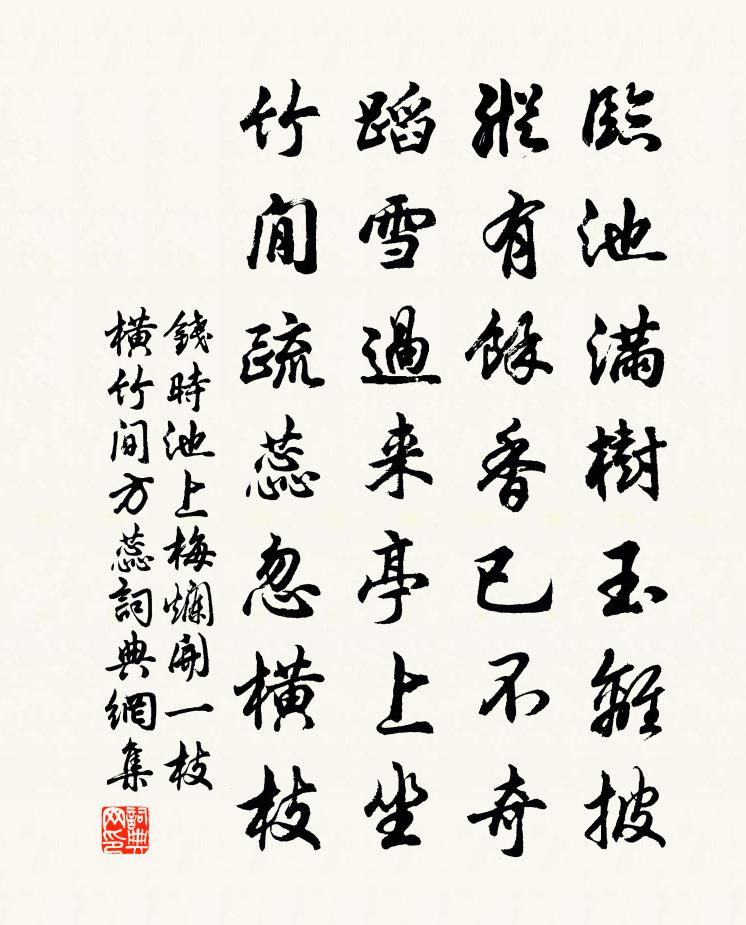 臨池滿樹玉離披
縱有餘香已不奇
蹈雪過来亭上坐
竹間疏蕊忽橫枝
錢時池上梅爛開一枝
橫竹間方蕊詞典網集
詞典网印